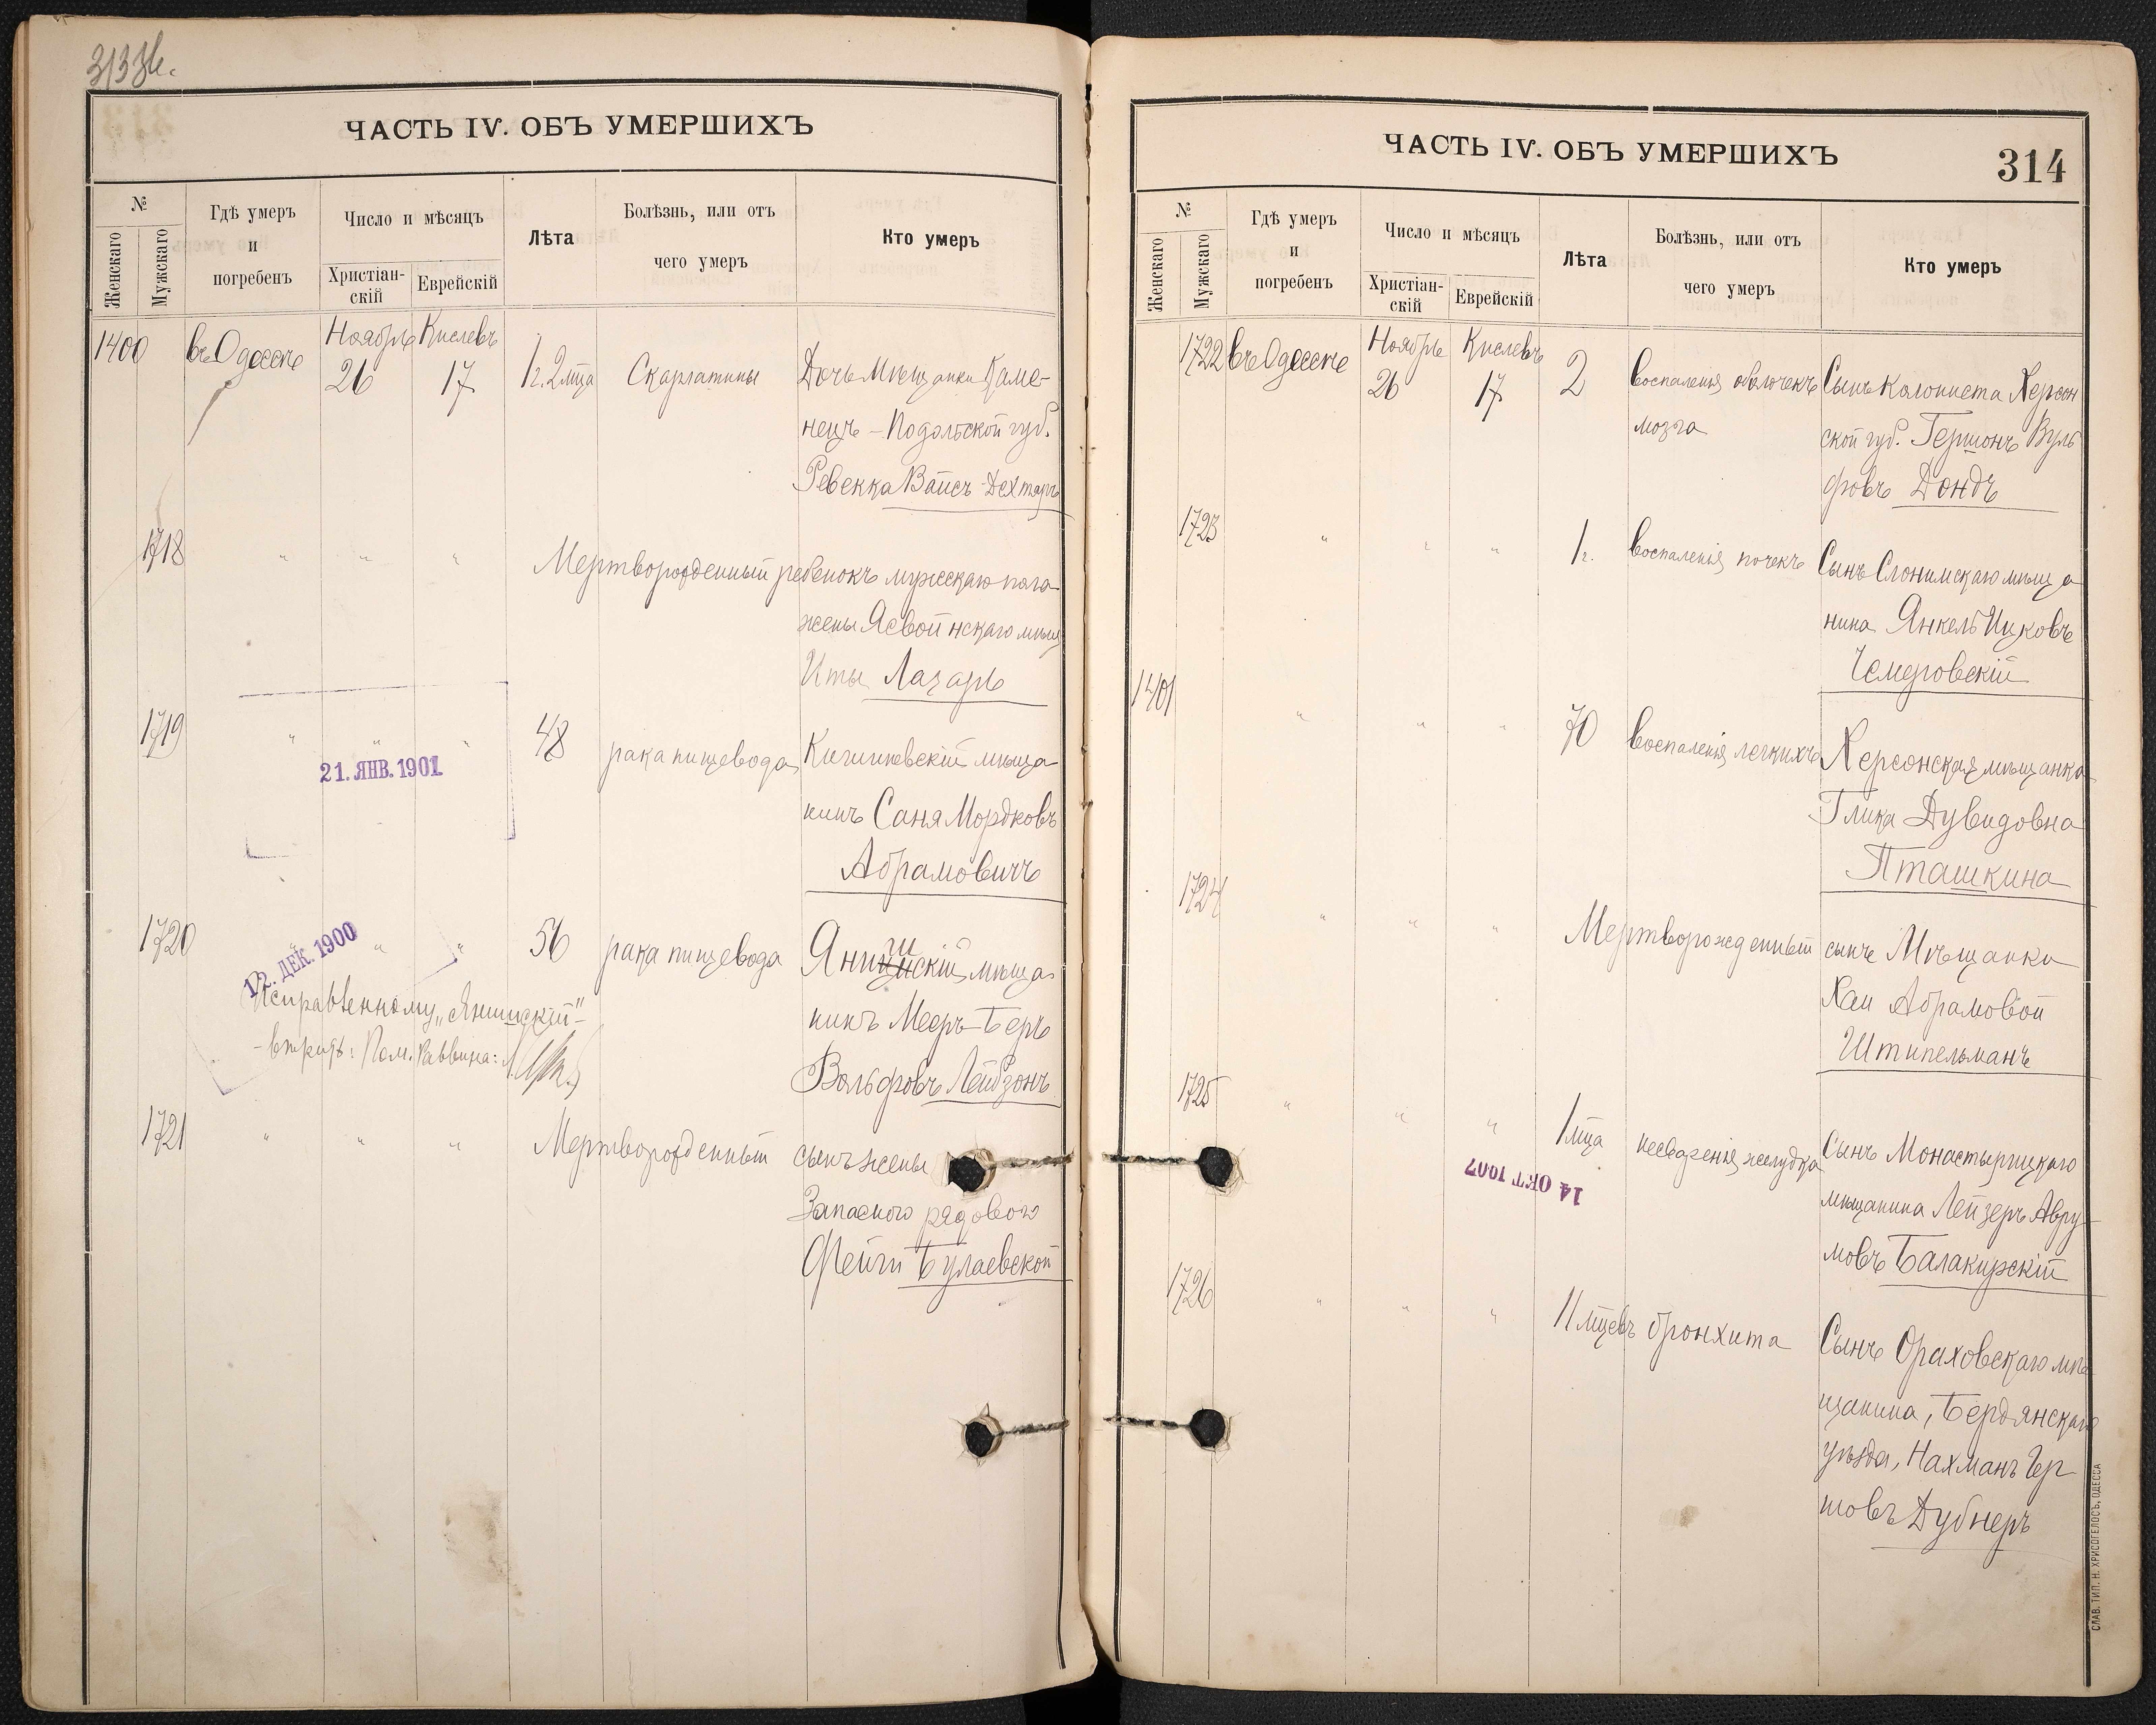 313 об.
ЧАСТЬ IV. ОБЪ УМЕРШИХЪ
№
Женскаго
Мужскаго
Гдѣ умеръ
и
погребенъ
Число и мѣсяцъ
Христіан-
скій
Еврейскій
Лѣта
Болѣзнь, или отъ
чего умеръ
Кто умеръ
1400 въ Одессѣ Ноябрь 26 Кислевъ 17 1 г. 2 мца Скарлатины Дочь Мѣщанки Каме-
нецъ-Подольской губ.
Ревекка Вайсъ-Дехтяръ
1718 " " " Мертворожденный ребенокъ мужескаго пола
жены мѣщ
Иты Лазарь
1719 " " " 48 рака пищевода Кишиневскій мѣща
нинъ Саня Мордковъ
Абрамовичъ
21. ЯНВ. 1901
1720 " " 56 рака пищевода скій мѣща
нинъ Мееръ-Беръ
Вольфовъ Лейбзонъ
12. ДЕК. 1900
Исправленному „Янишскій"-
-вѣрить: Пом. Раввина:
1721 " " " Мертворожденный сынъ жены
Запасного рядового
Фейги Булаевской
ЧАСТЬ IV. ОБЪ УМЕРШИХЪ
314
№
Женскаго
Мужскаго
Гдѣ умеръ
и
погребенъ
Число и мѣсяцъ
Христіан-
скій
Еврейскій
Лѣта
Болѣзнь, или отъ
чего умеръ
Кто умеръ
1722 въ Одессѣ Ноябрь 26 Кислевъ 17 2 воспаленія оболочекъ мозга Сынъ Колониста Херсон
ской губ. Гершонъ Вуль
фовъ Дондъ
1723 " " " 1 г. воспаленія почекъ Сынъ Слонимскаго мѣща
нина Янкель Ицковъ
Чемеровскій
1401 " " " 70 воспаленія легкихъ Херсонская мѣщанка
Глика Дувидовна
Пташкина
1724 " " " Мертворожденный сынъ Мѣщанки
Хаи Абрамовой
Штипельманъ
1725 " " " 1 мца несваренія желудка Сынъ Монастырицкаго
мѣщанина Лейзеръ Авру-
мовъ Балакирскій
14 ОКТ 1907
1726 " " " 11 мцевъ бронхита Сынъ Ораховскаго мѣ
щанина, Бердянскаго
уѣзда, Нахманъ Гер
шовъ Дубнеръ
СЛАВ. ТИП. Н. ХРИСОГЕЛОСЪ, ОДЕССА